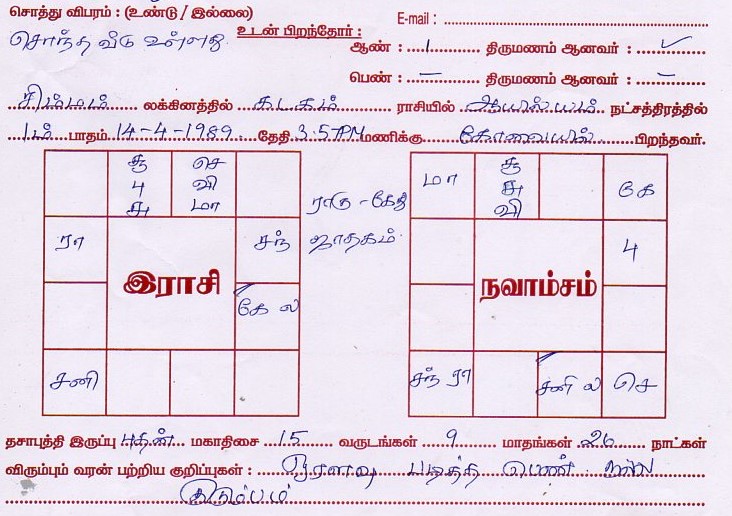 சொத்து விபரம் : (உண்டு / இல்லை) E-mail :
சொந்த வீடு உள்ளது உடன் பிறந்தோர் :
ஆண் : 1 திருமணம் ஆனவர் : ✓
பெண் : — திருமணம் ஆனவர் : —
சிம்மம் லக்கினத்தில் கடகம் ராசியில் ஆயில்யம் நட்சத்திரத்தில்
1ம் பாதம் 14-4-1989 தேதி 3.57PM மணிக்கு கோவையில் பிறந்தவர்.
சூ செ
பு வி
சு மா
ரா சந்
இராசி
கே ல
சனி
ராகு - கேது
ஜாதகம்
மா சூ கே
சு
வி
பு
நவாம்சம்
சந் ரா சனி ல செ
தசாபுத்தி இருப்பு புதன் மகாதிசை 15 வருடங்கள் 9 மாதங்கள் 26 நாட்கள்
விரும்பும் வரன் பற்றிய குறிப்புகள் : ஓரளவு படித்த பெண் நல்ல
குடும்பம்